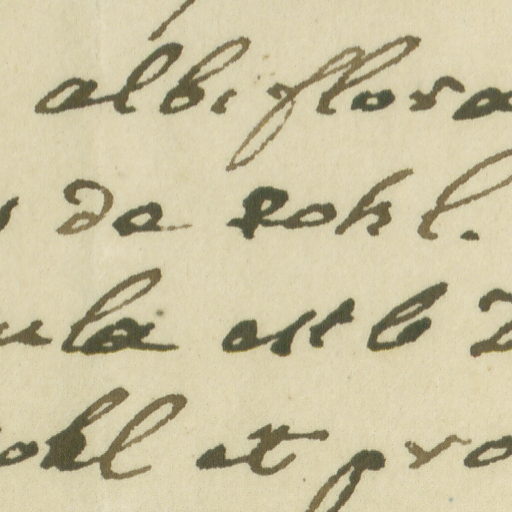 albiflora
de Rohl.
ula est b
ohl et pro